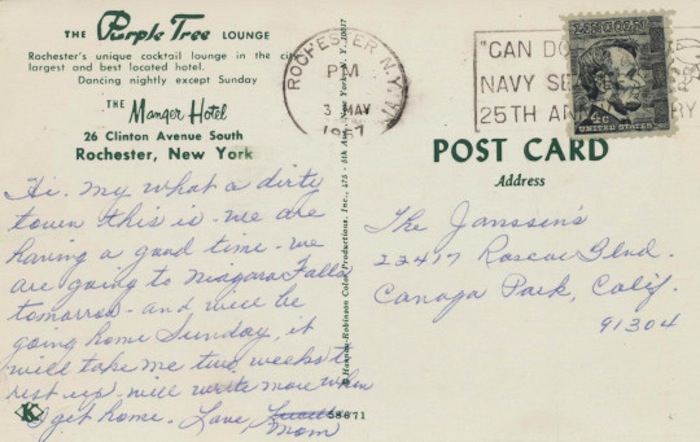 THE Purple Tree LOUNGE
Rochester's unique cocktail lounge in the city
largest and best located hotel.
Dancing nightly except Sunday
THE Manger Hotel
26 Clinton Avenue South
Rochester, New York
Hi. my what a dirty
town this is - we are
having a good time - we
are going to Niagara Falls
tomorrow - and will be
going home Sunday, it
will take me two weeks to
rest up - will write more when
I get home. Love,
Mom
K
58671
© Hannau-Robinson Color Productions, Inc., 475 - 5th Ave., New York, N. Y. 10017
ROCHESTER N.Y.
PM
3 MAY
1967
"CAN DO
NAVY SE
25TH AN RY
LINCOLN
4c
UNITED STATES
POST CARD
Address
The Janssen's
22417 Roscoe Blvd.
Canoga Park, Calif.
91304